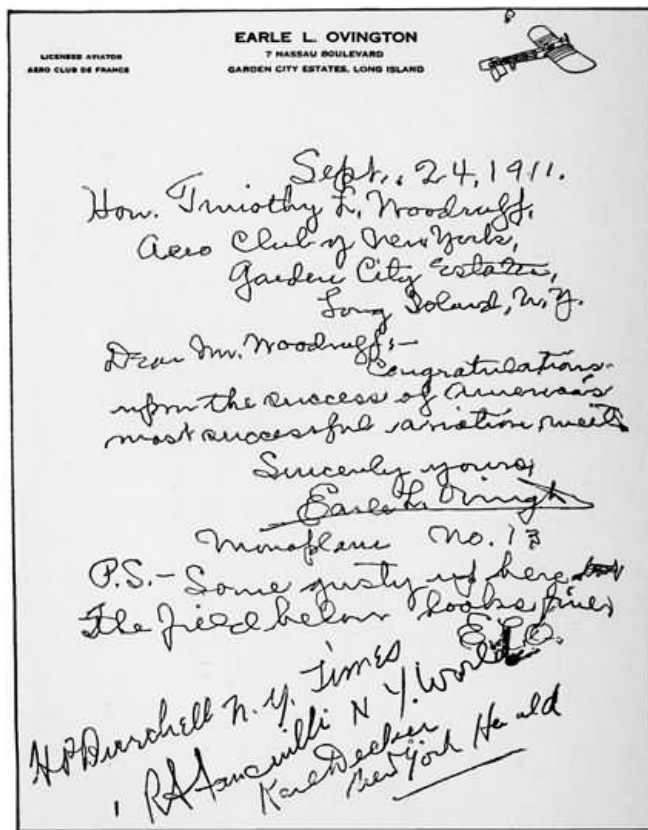 EARLE L. OVINGTON
7 NASSAU BOULEVARD
GARDEN CITY ESTATES, LONG ISLAND
LICENSED AVIATOR
AERO CLUB DE FRANCE
Sept., 24, 1911.
Hon. Timothy L. Woodruff,
Aero Club of New York,
Garden City Estates,
Long Island, N.Y.
Dear Mr. Woodruff:-
Congratulations
upon the success of America's
most successful aviation meet.
Sincerely yours,
Earle L. Ovington
Monoplane No. 13
P.S.- Some gusty up here
The field below looks fine,
E.L.O.
H P Burchell N. Y. Times
N Y. World
Karl Decker
New York Herald